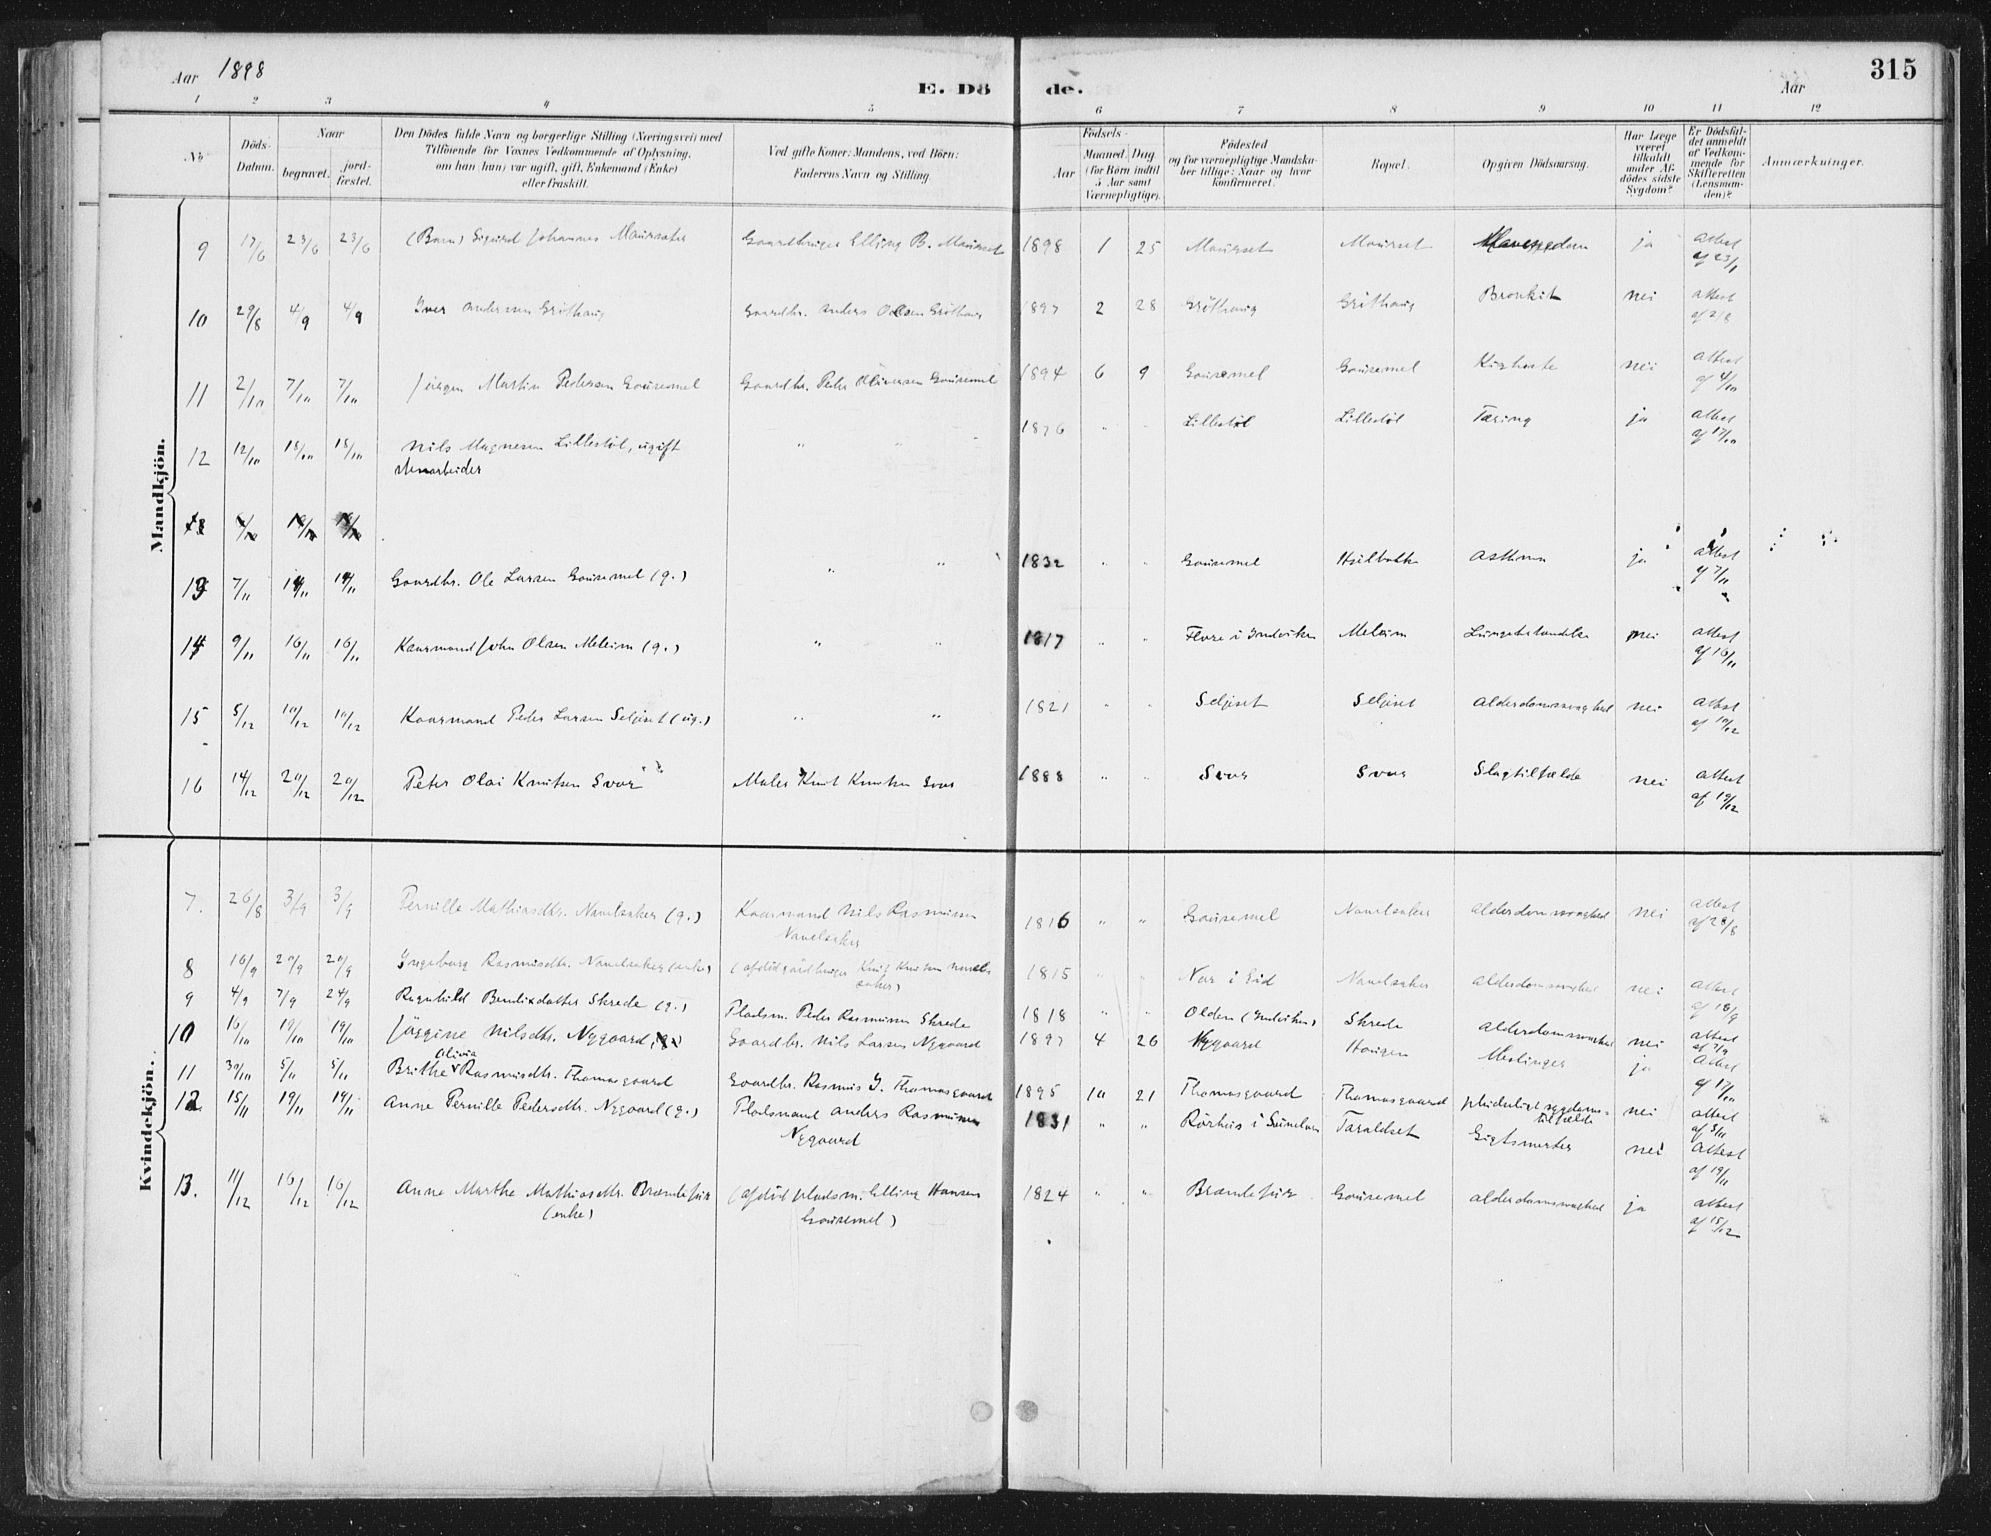 Aar 1898
E. Dö de.
315
Aar
1 2 3 4 5 6 7 8 9 10 11 12
No
Döds- Datum.
Naar
begravet.
jord- fæstet.
Den Dödes fulde Navn og borgerlige Stilling (Næringsvei) med
Tilföiende for Voxnes Vedkommende af Oplysning,
om han (hun) var ugift, gift, Enkemand (Enke)
eller fraskilt.
Ved gifte Koner: Mandens, ved Börn:
Faderens Navn og Stilling.
Födsels-
Aar
Maaned. Dag
(for Börn indtil
5 Aar samt
Værnepligtige).
Födested
og for værnepligtige Mandska-
ber tillige: Naar og hvor
konfirmeret.
Bopæl.
Opgiven Dödsaarsag.
Har Læge
været
tilkaldt
under Af-
dödes sidste
Sygdom?
Er Dödsfal-
det anmeldt
af Vedkom-
mende for
Skifteretten
(Lensman-
den)?
Anmærkninger.
Mandkjön.
9 17/6 23/6 23/6 (Barn) Sigurd Johannes Gaardbruger Elling B. Maurset 1898 1 25 Maurset Maurset ja Attest af 23/
10 29/8 4/9 4/9 Iver Andersen Gröthaug Gaardbr. Anders Olsen Gröthaug 1897 2 28 Gröthaug Gröthaug Bronkit nei Attest af 2/8
11 2/10 7/10 7/10 Jörgen Martin Pedersen Gausemel Gaardbr. Peder Oliversen Gausemel 1894 6 9 Gausemel Gausemel Kighoste nei Attest af 4/10
12 12/10 18/10 18/10 Nils Magnesen Lillestöl, ugift " " 1876 " " Lillestöl Lillestöl Tæring ja Attest af 17/10
13 7/11 14/11 14/11 Gaardbr. Ole Larsen Gausemel (g.) " " 1832 " " Gausemel Hjelbakke Asthma ja Attest af 7/11
14 9/11 16/11 16/11 Kaarmand John Olsen Meleim (g.) " " 1817 " " Flore i Indviken Meleim Lungebetændelse nei Attest af 16/11
15 5/12 10/12 10/12 Kaarmand Peder Larsen Seljeset (ug.) " " 1821 " " Seljeset Seljeset Alderdomssvaghed nei Attest af 10/12
16 14/12 20/12 20/12 Peter Olai Knutsen Svor Maler Knut Knutsen Svor 1888 " " Svor Svor Slagtilfælde nei Attest af 19/12
Kvindekjön.
7. 26/8 3/9 3/9 Pernille Mathiasdtr. Navelsaker (g.) Kaarmand Nils Rasmusen Navelsaker 1816 " " Gausemel Navelsaker Alderdomssvaghed nei Attest af 28/8
8 16/9 20/9 20/9 Ingeborg Rasmusdtr. Navelsaker (enke) (afdöd gaardbruger Knut Knutsen Navelsaker) 1815 " " Nor i Eid Navelsaker Alderdomssvaghed nei Attest af 18/9
9 4/9 7/9 24/9 Ragnhild Bendixdatter Skrede (g.) Pladsm. Peder Rasmusen Skrede 1818 " " Olden (Indviken) Skrede Alderdomssvaghed nei Attest af 7/9
10 16/10 19/10 19/10 Jörgine Nilsdtr. Nygaard Gaardbr. Nils Larsen Nygaard 1897 4 26 Nygaard Haugen Meslinger ja Attest af 17/10
11 30/10 5/11 5/11 Brithe Olivia Rasmusdtr. Thomasgaard Gaardbr. Rasmus I. Thomasgaard 1895 10 21 Thomasgaard Thomasgaard pludseligt sygdoms- tilfælde nei Attest af 3/11
12 15/11 19/11 19/11 Anne Pernille Pedersdtr. Nygaard (g.) Pladsmand Anders Rasmusen Nygaard 1831 " " Rörhus i Taraldset Gigtsmerter nei Attest af 19/11
13. 11/12 16/12 16/12 Anne Marthe Mathiasdtr. (enke) (afdöd pladsm. Elling Hansen Gausemel) 1824 " " Gausemel Alderdomssvaghed ja Attest af 15/12